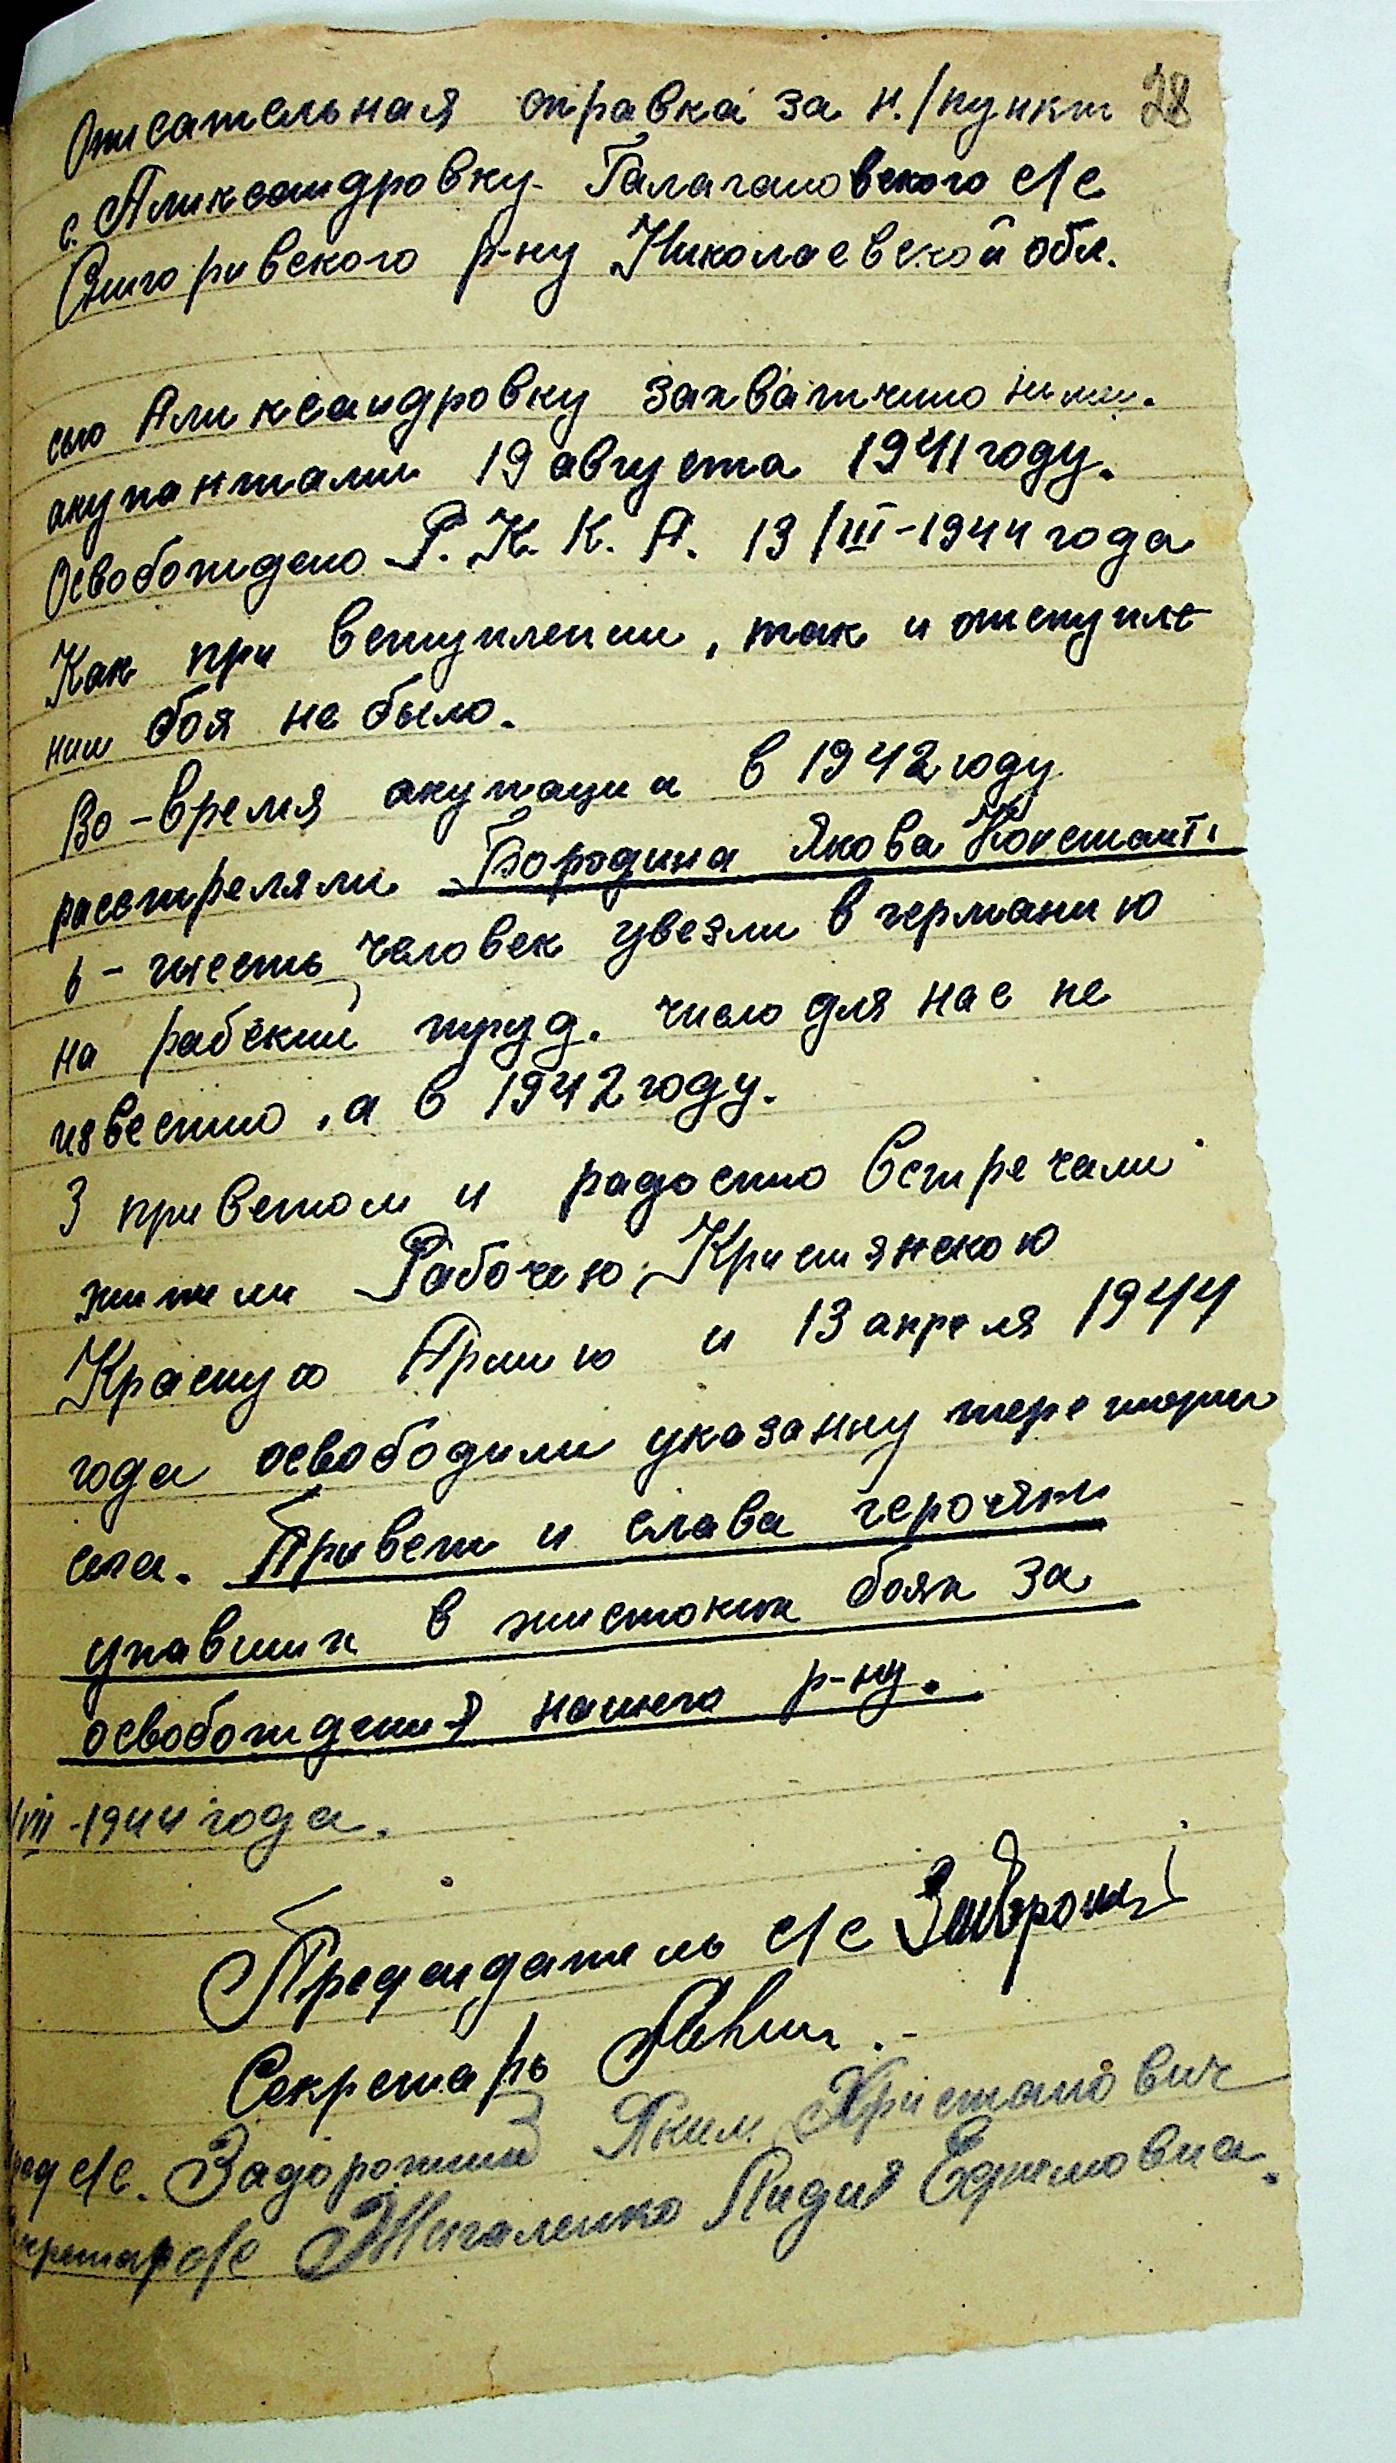 Описательная справка за н./пункт 28
с. Александровку Галагановского с/с
Снигоривского р-ну Николаевской обл.
село Александровку захватчено нимец.
акупантами 19 августа 1941 году.
Освобождено Р. К. К. А. 13/III-1944 года
Как при вступлении, так и отступле
нии боя не было.
Во-время акупации в 1942 году
расстреляли Бородина Якова Констант.
6-шесть человек увезли в германию
на рабский труд. число для нас не
известно, а в 1942 году.
З приветом и радостно встречали
жители Рабочею Кристянскою
Красную Армию и 13 апреля 1944
года освободили указанну територи
Привет и слава героям
упавших в жистоких боях за
освобождения нашего р-ну.
/VIII-1944 года.
Председатель с/с
Секретарь
с/с. Задорожний Яким Христанович
с/с Жигаленко Лидия Ефимовна.